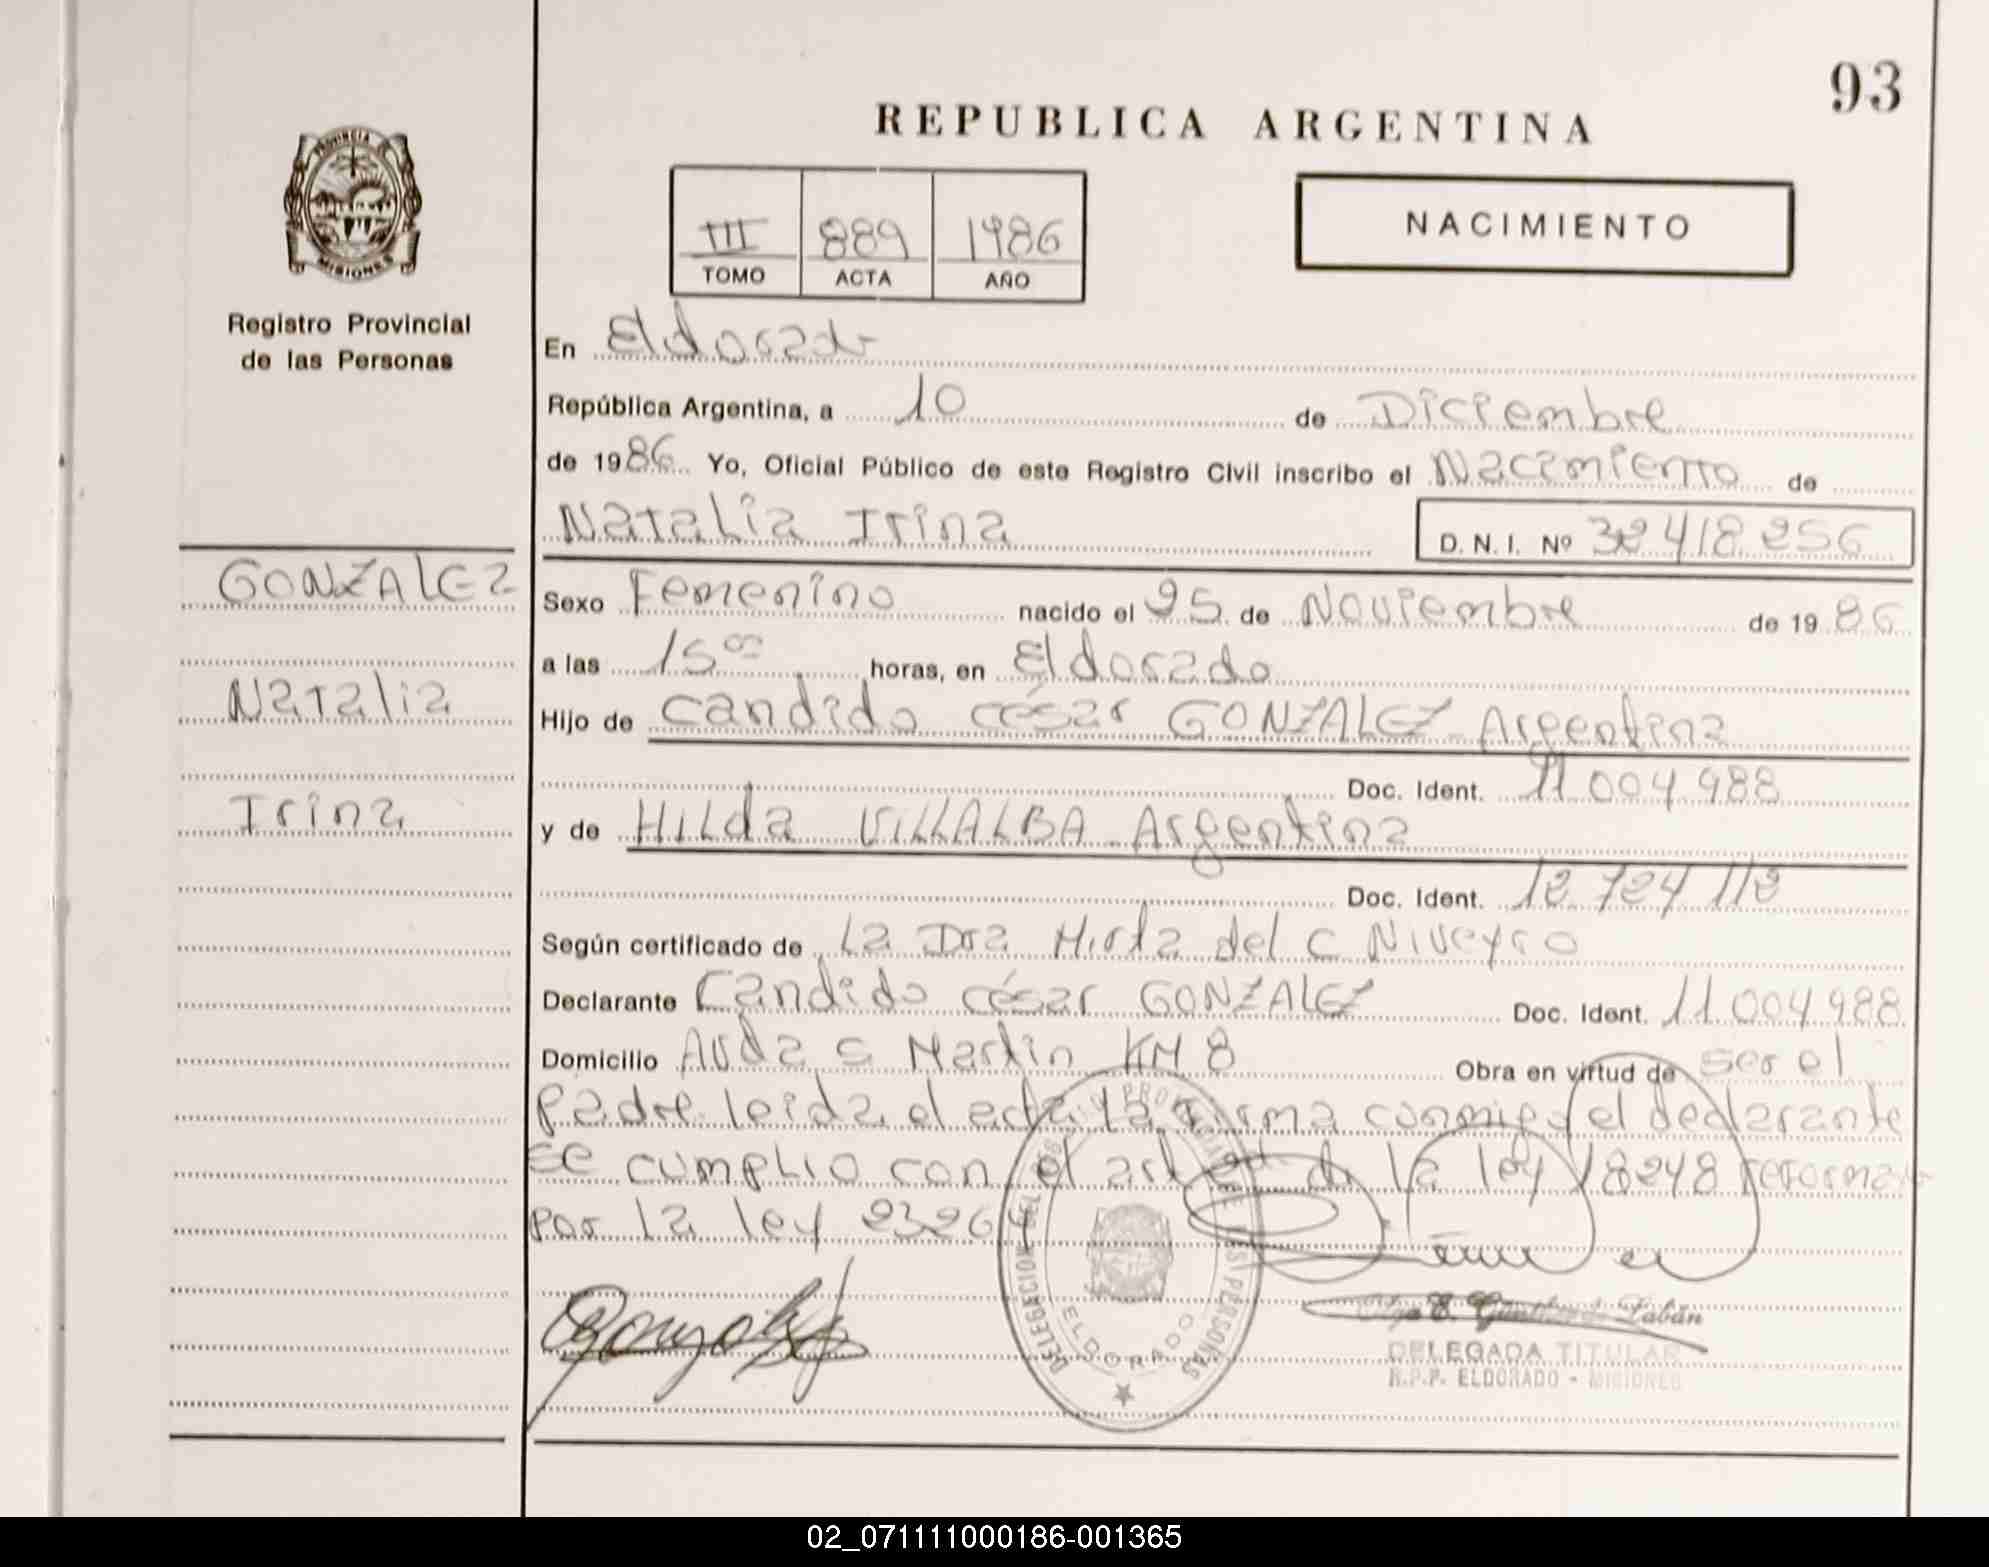 93
REPUBLICA ARGENTINA
PROVINCIA DE
MISIONES
III 889 1986
TOMO ACTA AÑO
NACIMIENTO
Registro Provincial
de las Personas
En Eldorado
República Argentina, a 10 de Diciembre
de 1986 Yo, Oficial Público de este Registro Civil inscribo el Nacimiento de
Natalia Irina D. N. I. Nº 32 418 256
GONZALEZ
Natalia
Irina
Sexo Femenino nacido el 25 de Noviembre de 1986
a las 15 00 horas, en Eldorado
Hijo de Candido césar GONZALEZ Argentina
Doc. Ident. 11.004.988
y de Hilda VILLALBA Argentina
Doc. Ident. 12.724 112
Según certificado de La Dra Mirta del C Niveyro
Declarante Candido césar GONZALEZ Doc. Ident. 11.004.988
Domicilio Avda S Martin KM 8 Obra en virtud de ser el
padre leida el acta la firma conmigo el declarante
se cumplio con el art de la ley 18248 reformada
por la ley 23264
DELEGACION DEL REG. PROVINCIAL DE LAS PERSONAS
ELDORADO
Laban
DELEGADA TITULAR
R.P.P. ELDORADO - MISIONES
02_071111000186-001365